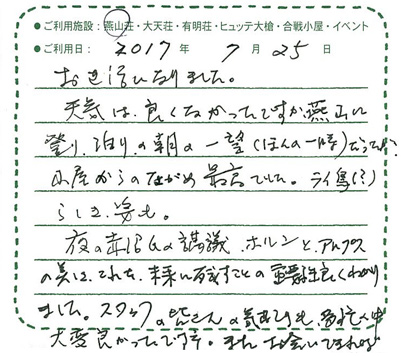 ●ご利用施設:燕山荘・大天荘・有明荘・ヒュッテ大槍・合戦小屋・イベント
●ご利用日: 2017 年 7 月 25 日
お世話になりました。
天気は、良くなかったですが燕山に
登り、泊り、の朝の一望(ほんの一時)
小屋からのながめ最高でした。ライ鳥(?)
らしき姿も。
夜の赤沼氏の講議、ホルンと、アルプス
の美に、それを、未来に残すことの重要性良くわかり
ました。スタッフの皆さんの気
大変良かったです。また、お会いできれば